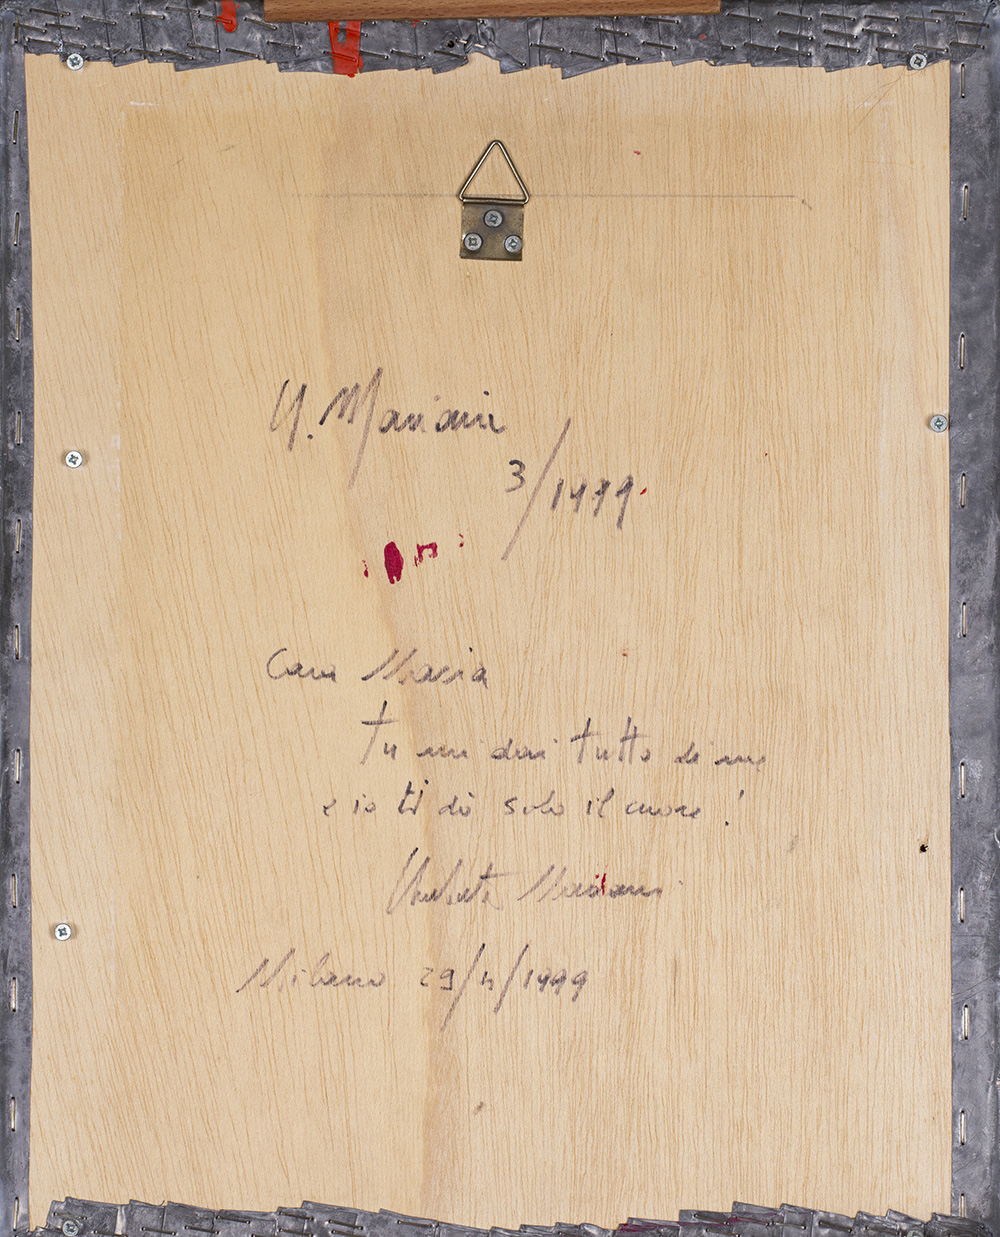 U. Mariani
3/1999
Cara Maria
tu mi dai tutto di me
e io ti dò solo il cuore!
Umberto Mariani
Milano 29/4/1999